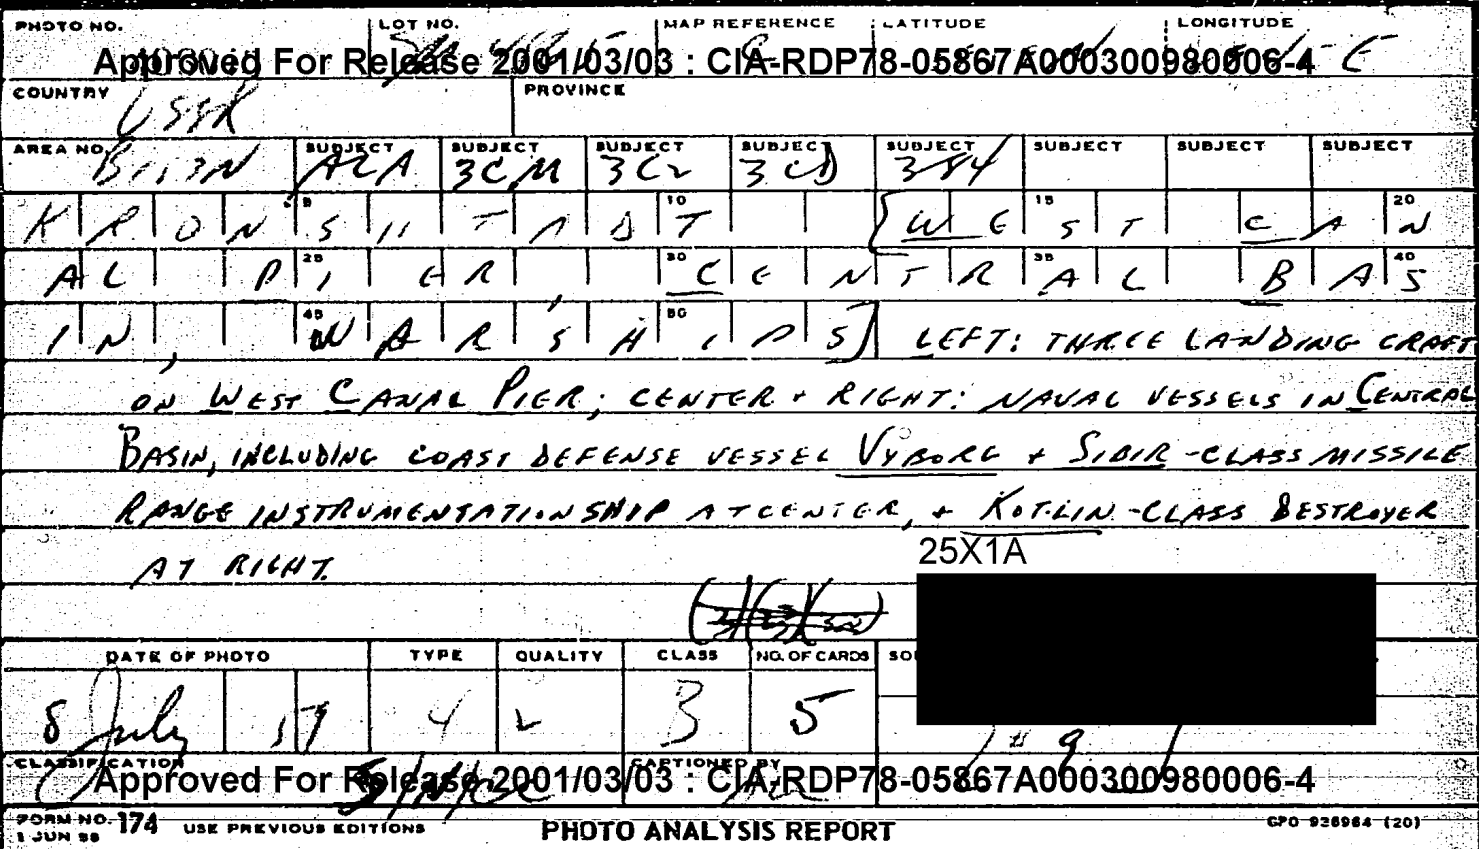 PHOTO NO. LOT NO. MAP REFERENCE LATITUDE LONGITUDE
Approved For Release 2001/03/03 : CIA-RDP78-05867A000300980006-4
COUNTRY PROVINCE
USSR
AREA NO. SUBJECT SUBJECT SUBJECT SUBJECT SUBJECT SUBJECT SUBJECT SUBJECT
3CM 3CD 384
KRONSHTADT (WEST CAN
AL PIER, CENTRAL BAS
IN, WARSHIPS) LEFT: THREE LANDING CRAFT
ON WEST CANAL PIER; CENTER + RIGHT: NAVAL VESSELS IN CENTRAL
BASIN, INCLUDING COAST DEFENSE VESSEL VYBORG + SIBIR-CLASS MISSILE
RANGE INSTRUMENTATION SHIP AT CENTER, + KOTLIN-CLASS DESTROYER
AT RIGHT.
25X1A
DATE OF PHOTO TYPE QUALITY CLASS NO. OF CARDS
8 July 3 5
# 9
CLASSIFICATION CAPTIONED BY
Approved For Release 2001/03/03 : CIA-RDP78-05867A000300980006-4
FORM NO. 174 USE PREVIOUS EDITIONS PHOTO ANALYSIS REPORT GPO 926964 (20)
1 JUN 58